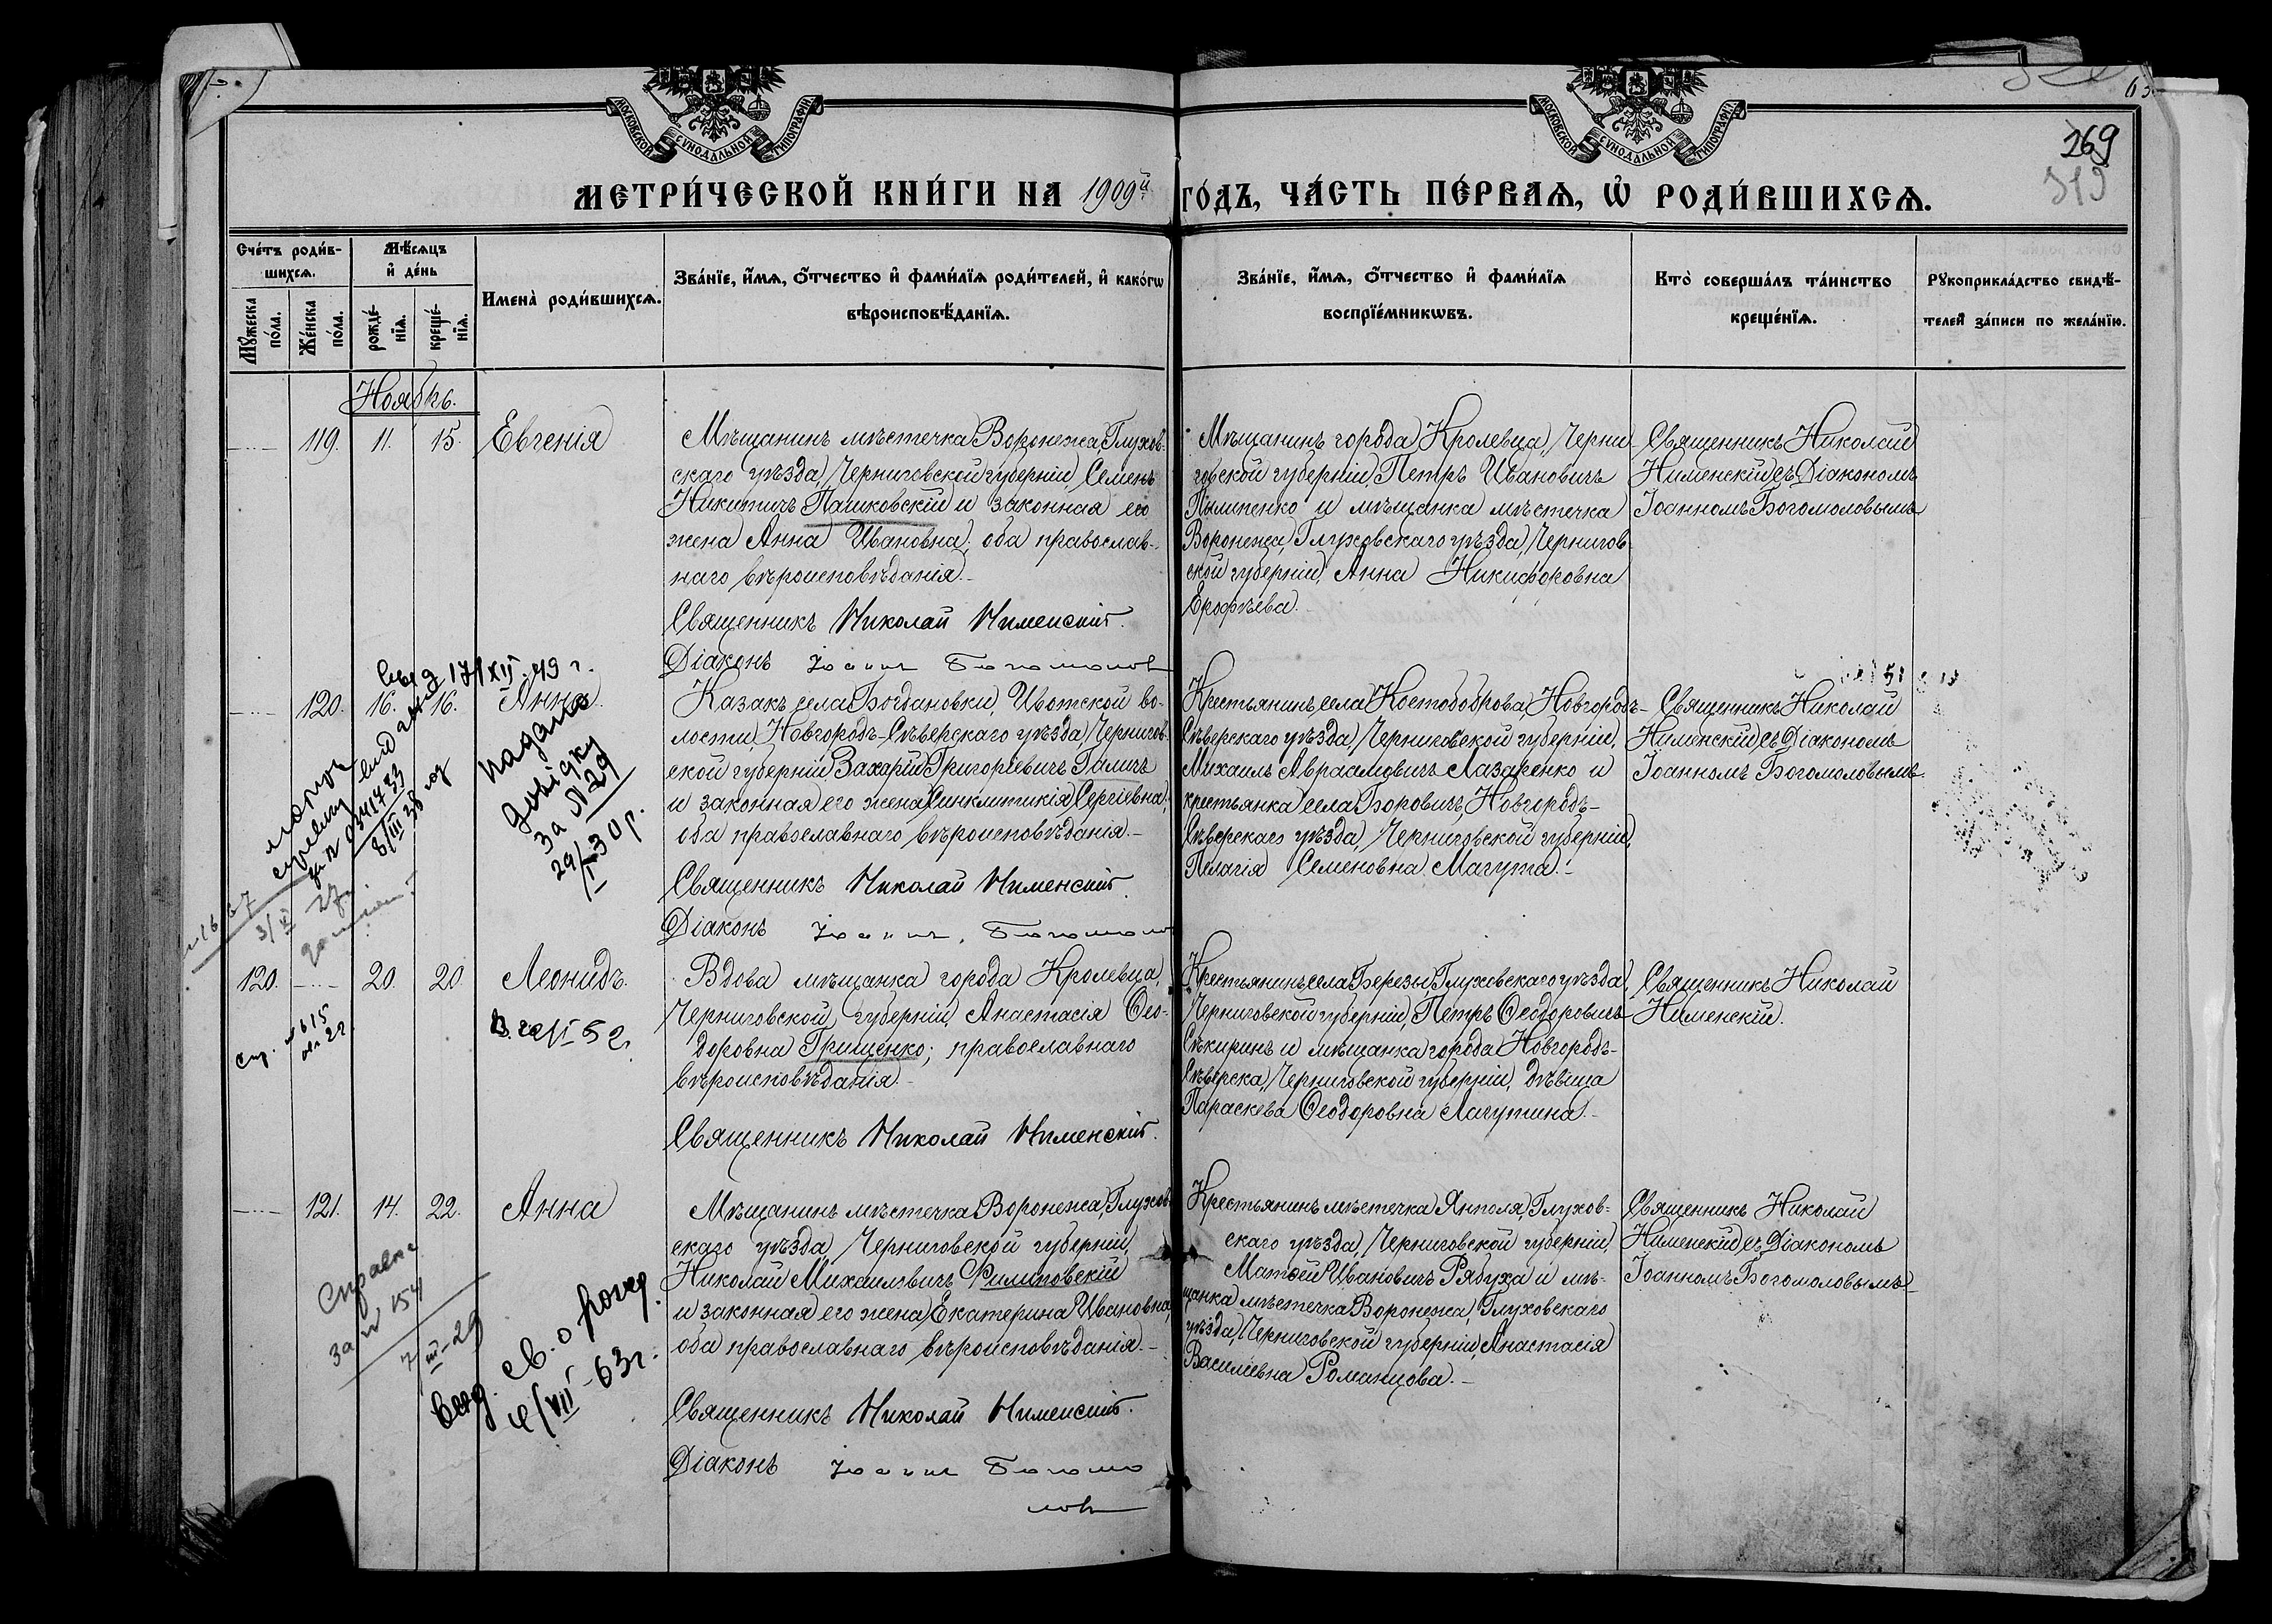 МОСКОВСКОЙ СѴНОДАЛЬНОЙ ТИПОГРАФІИ
МОСКОВСКОЙ СѴНОДАЛЬНОЙ ТИПОГРАФІИ
269
319
МЕТРИ́ЧЕСКОЙ КНИ́ГИ НА 1909й ГО́ДЪ, ЧА́СТЬ ПЕ́РВАѦ, Ѡ РОДИ́ВШИХСѦ.
Сче́тъ роди́в-
шихсѧ.
Мꙋ́жеска
по́ла.
Же́нска
по́ла.
Мѣ́сѧцъ
и҆ де́нь
рожде́-
нїѧ.
креще́-
нїѧ.
Имена̀ роди́вшихсѧ.
Зва́нїе, и҆́мѧ, ѻ҆́тчество и҆ фами́лїѧ роди́телей, и҆ како́гѡ
вѣроисповѣ́данїѧ.
Зва́нїе, и҆́мѧ, ѻ҆́тчество и҆ фами́лїѧ
воспрїе́мникѡвъ.
Кто̀ соверша́лъ та́инство
креще́нїѧ.
Рꙋкоприкла́дство свидѣ́-
телей за́писи по жела́нїю.
Ноябрь.
119. 11. 15. Евгенія
Мѣщанинъ мѣстечка Воронежа, Глухов-
скаго уѣзда, Черниговской губерніи, Семенъ
Никитичъ Пашковскій и законная его
жена Анна Ивановна; оба православ-
наго вѣроисповѣданія.
Священникъ Николай Нименскій.
Діаконъ Іоаннъ Богомолов
Мѣщанинъ города Кролевца, Черни-
говской губерніи, Петръ Ивановичъ
Пылипенко и мѣщанка мѣстечка
Воронежа, Глуховскаго уѣзда, Чернигов-
ской губерніи, Анна Никифоровна
Ерофѣева.
Священникъ Николай
Нименскій съ Діакономъ
Іоанномъ Богомоловымъ
120. 16. 16. Анна.
17/XII 49 г.
Надано
довідку
за № 29
29/I 30 р.
8/III 38
3/X 27
Казакъ села Богдановки, Ивотской во-
лости, Новгородъ-Сѣверскаго уѣзда, Чернигов-
ской губерніи Захарій Григоріевичъ Галичъ
и законная его жена Синклитикія Сергіевна;
оба православнаго вѣроисповѣданія.
Священникъ Николай Нименскій.
Діаконъ Іоаннъ Богомолов
Крестьянинъ села Костобоброва, Новгородъ-
Сѣверскаго уѣзда, Черниговской губерніи,
Михаилъ Авраамовичъ Лазаренко и
крестьянка села Боровичъ, Новгородъ-
Сѣверскаго уѣзда, Черниговской губерніи,
Пелагія Семеновна Магута.
Священникъ Николай
Нименскій съ Діакономъ
Іоанномъ Богомоловымъ.
120. 20. 20. Леонидъ.
Вдова мѣщанка города Кролевца,
Черниговской губерніи, Анастасія Ѳео-
доровна Грищенко; православнаго
вѣроисповѣданія.
Священникъ Николай Нименскій.
Крестьянинъ села Березы, Глуховскаго уѣзда,
Черниговской губерніи, Петръ Ѳеодоровичъ
Сѣкиринъ и мѣщанка города Новгородъ-
Сѣверска, Черниговской губерніи, дѣвица
Параскева Ѳеодоровна Лагутина.
Священникъ Николай
Нименскій.
121. 14. 22. Анна
Справка
за № 154
7/III-29
выд. св. о рожд.
VIII-63г.
Мѣщанинъ мѣстечка Воронежа, Глухов-
скаго уѣзда, Черниговской губерніи,
Николай Михаиловичъ Филиповскій
и законная его жена Екатерина Ивановна,
оба православнаго вѣроисповѣданія.
Священникъ Николай Нименскій.
Діаконъ Іоаннъ Богомо
лов
Крестьянинъ мѣстечка Янполя, Глухов-
скаго уѣзда, Черниговской губерніи,
Матѳей Ивановичъ Рябуха и мѣ-
щанка мѣстечка Воронежа, Глуховскаго
уѣзда, Черниговской губерніи, Анастасія
Василіевна Романцова.
Священникъ Николай
Нименскій съ Діакономъ
Іоанномъ Богомоловымъ